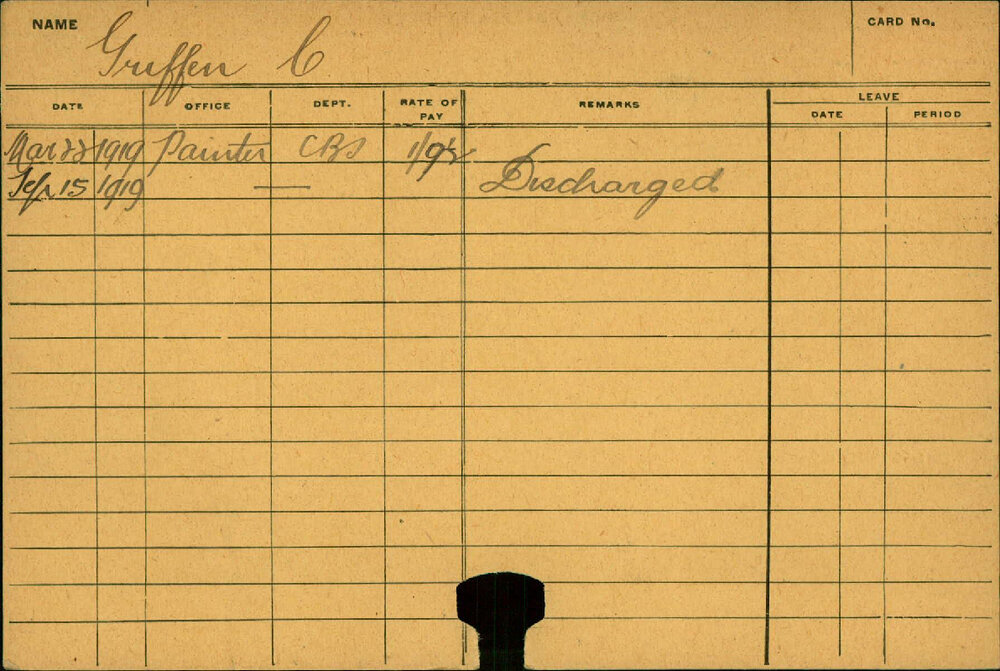 NAME Griffen C CARD No.
DATE OFFICE DEPT. RATE OF PAY REMARKS LEAVE DATE PERIOD
Mar 22 1919 Painter CBS 1/9½
Sep 15 1919 — Discharged